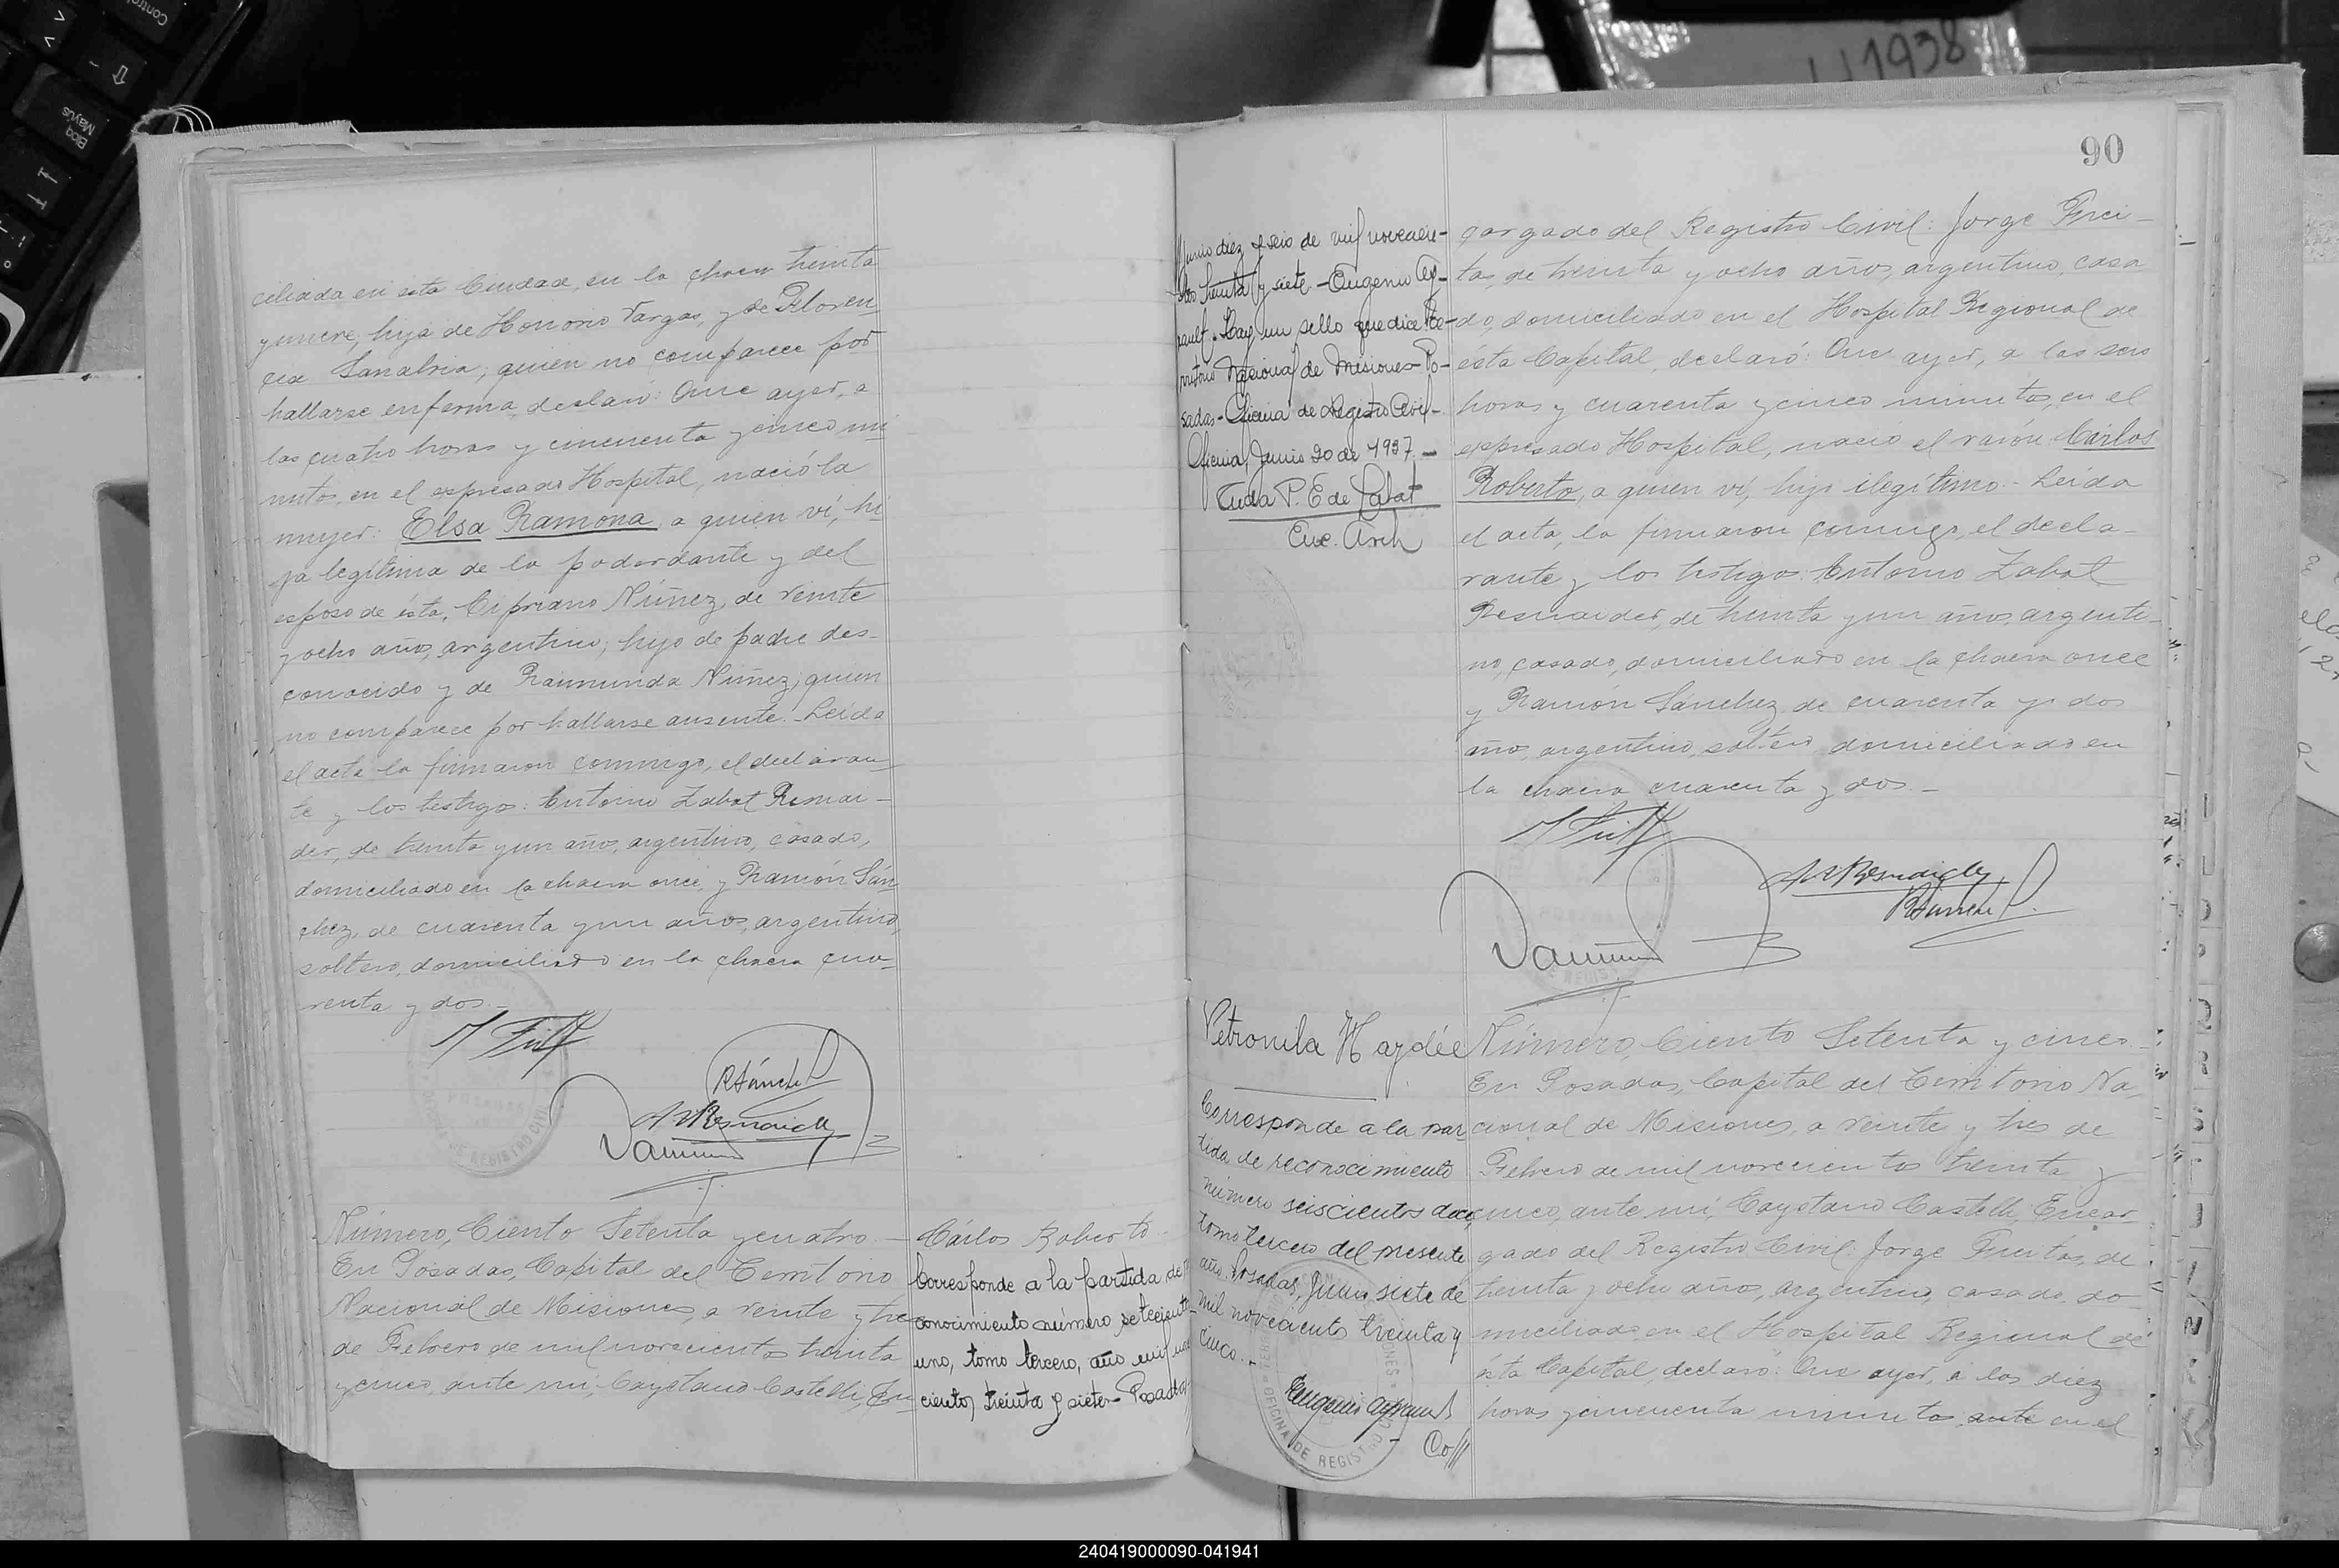 ciliada en esta Ciudad, en la chacra treinta
y nueve, hija de Honorio Vargas, y de Floren
cia Sanabria, quien no comparece por
hallarse enferma, declaró: Que ayer, a
las cuatro horas y cincuenta y cinco mi
nutos, en el expresado Hospital, nació la
mujer: Elsa Ramona, a quien ví, hi
ja legítima de la poderdante y del
esposo de ésta, Cipriano Núñez, de veinte
y ocho años, argentino, hijo de padre des-
conocido y de Raimunda Núñez, quien
no comparece por hallarse ausente. - Leída
el acta la firmaron conmigo, el declaran
te y los testigos: Antonio Zabat Resnai-
der, de treinta y un años, argentino, casado,
domiciliado en la chacra once, y Ramón Sán
chez, de cuarenta y un años, argentino,
soltero, domiciliado en la chacra cua-
renta y dos. -
Número, Ciento Setenta y cuatro. -
En Posadas, Capital del Territorio
Nacional de Misiones, a veinte y tres
de Febrero de mil novecientos treinta
y cinco, ante mi, Cayetano Castelli, En
Cárlos Roberto -
Corresponde a la partida de re
conocimiento número setecientos
uno, tomo tercero, año mil nove
cientos treinta y siete - Posadas
90
Junio diez y seis de mil novecien-
tos treinta y siete - Eugenio Ay-
rault - Hay un sello que dice Te-
rritorio Nacional de Misiones - Po-
sadas - Oficina de Registro Civil -
Oficina, Junio 20 de 1937. -
Enc. Arch
cargado del Registro Civil: Jorge Frei-
tas, de treinta y ocho años, argentino, casa
do, domiciliado en el Hospital Regional de
ésta Capital, declaró: Que ayer, a las seis
horas y cuarenta y cinco minutos, en el
expresado Hospital, nació el varón: Carlos
Roberto, a quien ví, hijo ilegítimo. - Leída
el acta, la firmaron conmigo, el decla-
rante y los testigos: Antonio Zabat
Resnaider, de treinta y un años, argenti-
no, casado, domiciliado en la chacra once
y Ramón Sánchez, de cuarenta y dos
años, argentino, soltero, domiciliado en
la chacra cuarenta y dos. -
Petronila Haydée
Corresponde a la par
tida de reconocimiento
número seiscientos doce,
tomo tercero del presente
año. Posadas, Junio siete de
mil novecientos treinta y
cinco. -
OFICINA DE REGISTRO
Número, Ciento Setenta y cinco -
En Posadas, Capital del Territorio Na,
cional de Misiones, a veinte y tres de
Febrero de mil novecientos treinta y
cinco, ante mi, Cayetano Castelli, Encar
gado del Registro Civil: Jorge Freitas, de
treinta y ocho años, argentino, casado, do
miciliado en el Hospital Regional de
ésta Capital declaró: Que ayer, a las diez
horas y cincuenta minutos, ante en el
Control
Bloq
Mayús
1938
240419000090-041941